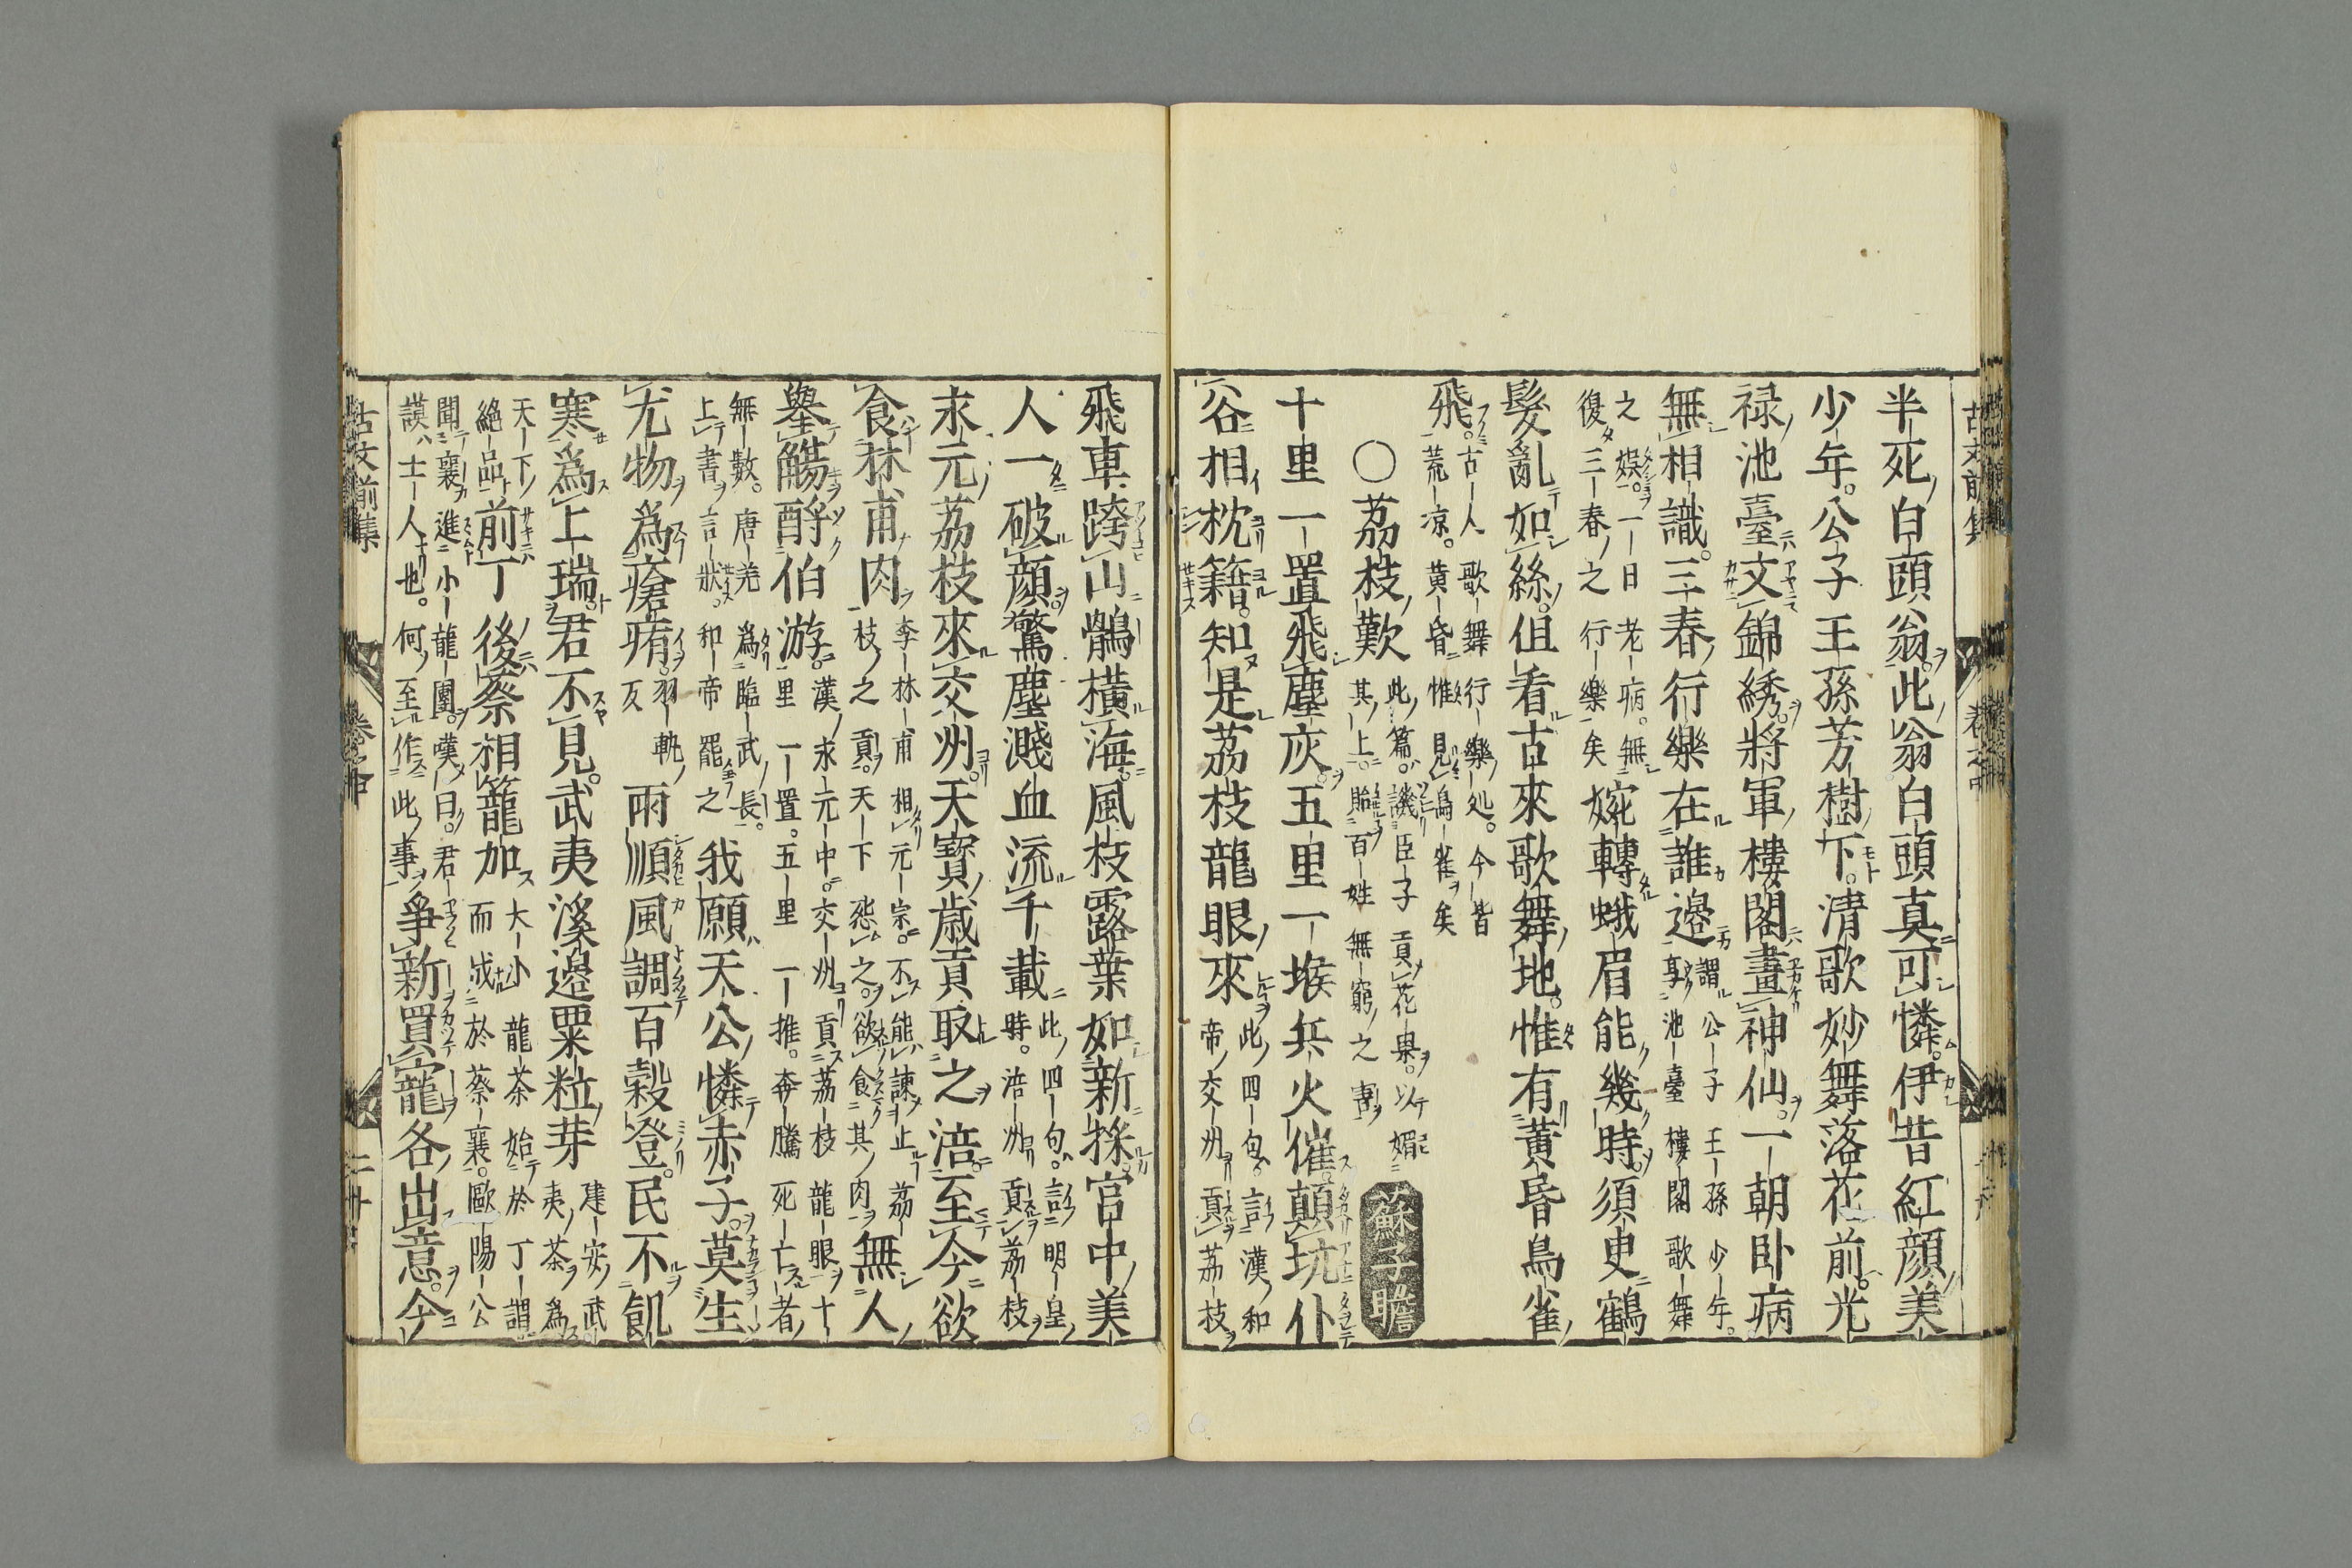 半死白頭翁此翁白頭真可憐伊昔紅顔美
少年公子王孫芳樹下清歌妙舞落花前光
禄池臺文錦綉將軍樓閣畫神仙一朝卧病
無相識三春行樂在誰邊
謂公子王孫少年
享池臺樓閣歌舞
之娯一日老病無
復三春之行樂矣
婉轉蛾眉能幾時須臾鶴
髮亂如絲但看古來歌舞地惟有黄昏鳥雀
飛
古人歌舞行樂処今皆
荒凉黄昏惟見鳥雀矣
〇荔枝歎
此篇譏臣子貢花果以媚
其上貽百姓無窮之害
蘇子瞻
十里一置飛塵灰五里一堠兵火催顛坑仆
谷相枕籍知是荔枝龍眼來
此四句言漢和
帝交州貢荔枝
飛車跨山鶻橫海風枝露葉如新採宮中美
人一破顔驚塵濺血流千載
此四句言明皇
時涪州貢荔枝
永元荔枝來交州天寶歳貢取之涪至今欲
食林甫肉
李林甫相元宗不能諫止荔
枝之貢天下怨之欲食其肉
無人
舉觴酹伯游
漢永元中交州貢荔枝龍眼十
里一置五里一堠奔騰死亡者
無數唐羌爲臨武長
上書言狀和帝罷之
我願天公憐赤子莫生
尤物爲瘡痏
羽軌
反
雨順風調百穀登民不飢
寒爲上瑞君不見武夷溪邊粟粒芽
建安武
夷茶爲
天下
絶品
前丁後蔡相籠加
大小龍茶始於丁謂
而成於蔡襄歐陽公
聞襄進小龍團嘆曰君
謨士人也何至作此事
爭新買寵各出意今
古文前集
卷之中
古文前集
卷之中